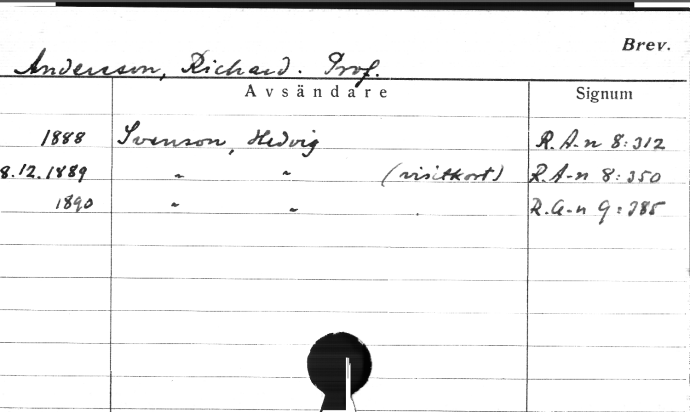 Brev.
Andersson, Richard. Prof.
Avsändare Signum
1888 Svenson, Hedvig R.A-n 8:312
8.12.1889 " " (visitkort) R.A-n 8:350
1890 " " R.A-n 9:385